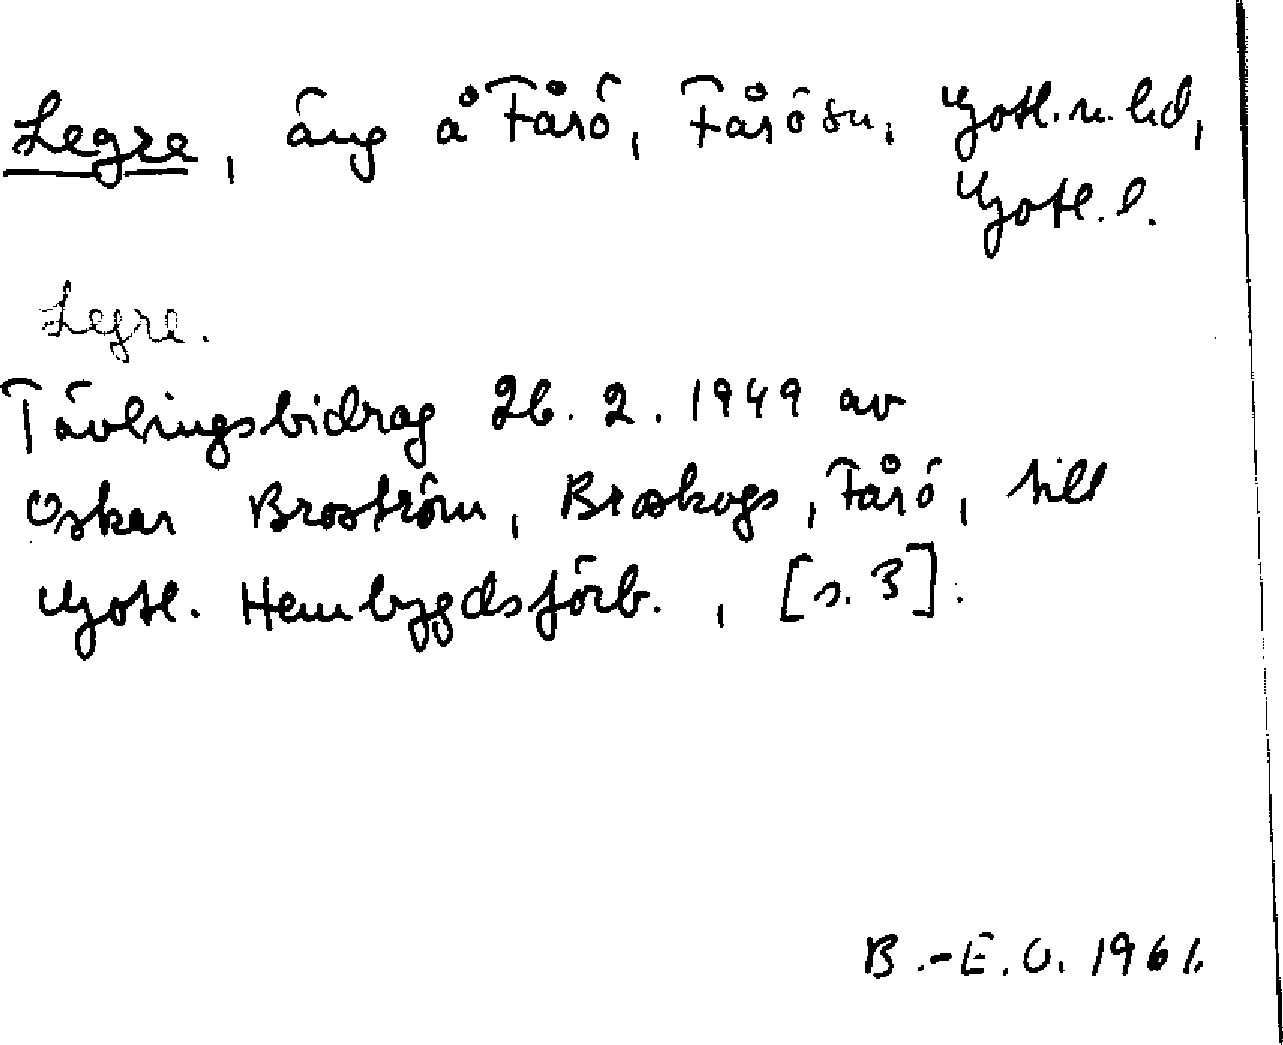 Legre, äng å Fårö, Fårö sn, Gotl. n. hd,
Gotl. l.
Legre.
Tävlingsbidrag 26. 2. 1949 av
Oskar Broström, Broskogs, Fårö, till
Gotl. Hembygdsförb., [s. 3].
B.-E. O. 1961.